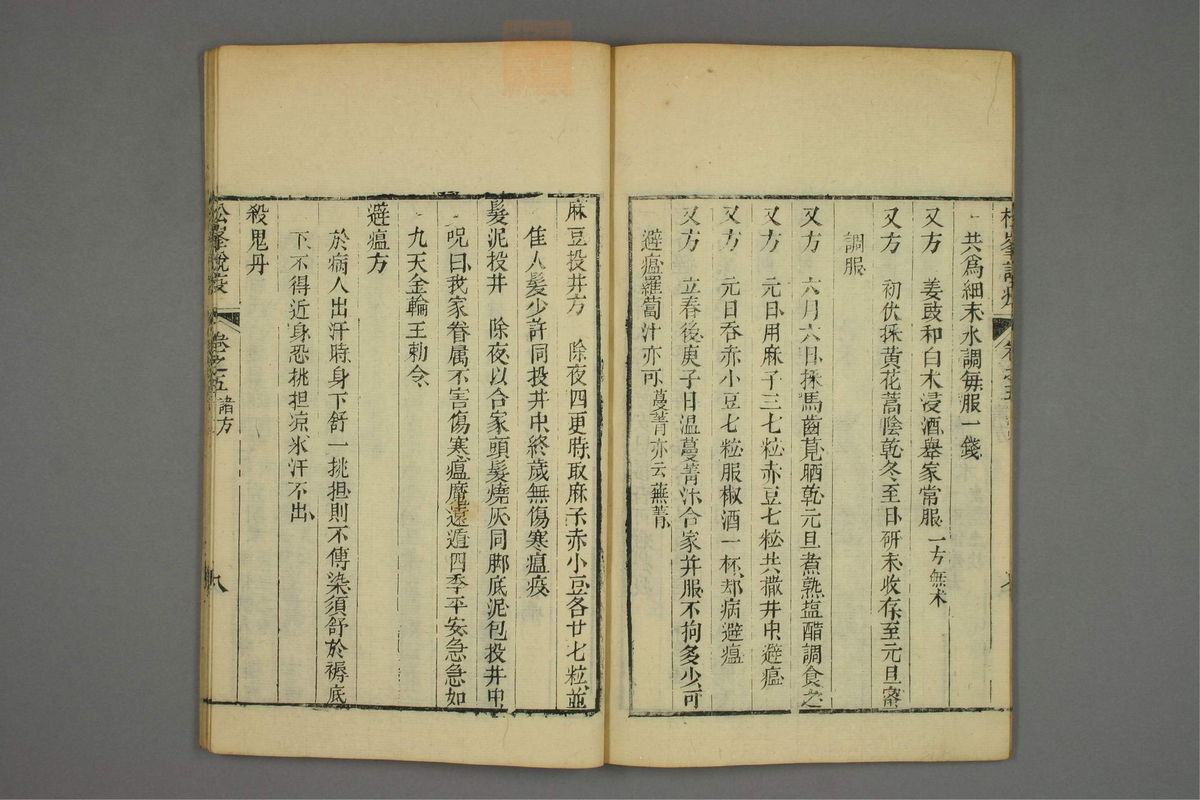 松峯說疫 卷之五
共爲細末水調每服一錢
又方 姜豉和白朮浸酒舉家常服 一方無朮
又方 初伏採黃花蒿陰乾冬至日研末收存至元旦蜜
調服
又方 六月六日採馬齒莧晒乾元旦煮熟塩醋調食之
又方 元日用麻子三七粒赤豆七粒共撒井中避瘟
又方 元日吞赤小豆七粒服椒酒一杯却病避瘟
又方 立春後庚子日温蔓菁汁合家并服不拘多少可
避瘟羅蔔汁亦可 蔓菁亦云蕪菁
麻豆投井方 除夜四更時取麻子赤小豆各廿七粒並
隹人髮少許同投井中終歲無傷寒瘟疫
髮泥投井 除夜以合家頭髮燒灰同脚底泥包投井中
咒曰我家眷属不害傷寒瘟魔遠遁四季平安急急如
九天金輪王勅令
避瘟方
於病人出汗時身下舒一挑担則不傳染須舒於褥底
下不得近身恐挑担凉氷汗不出
殺鬼丹
松峯說疫 卷之五 諸方 八